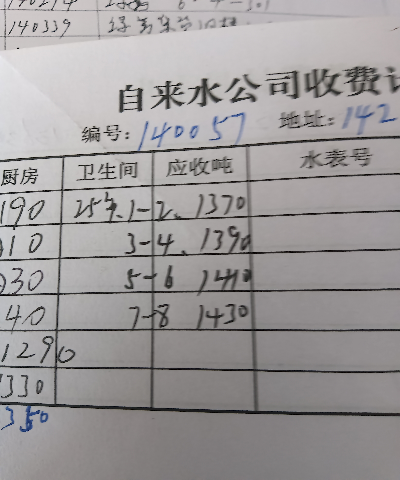 140339
自来水公司收费
编号: 140057 地址: 142
厨房 卫生间 应收吨 水表号
190 25年.1-2. 1370
10 3-4. 1390
30 5-6 1410
40 7-8 1430
1290
1330
350